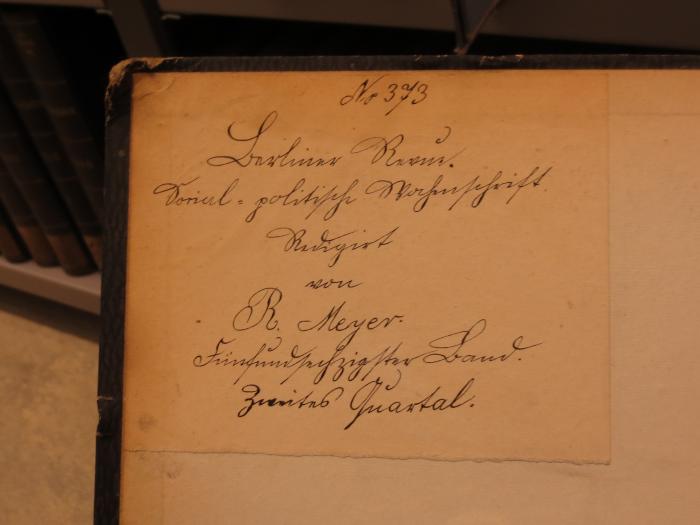 No 373
Berliner Revue.
Social-politische Wochenschrift.
Redigirt
von
R. Meyer.
Fünfundsechzigster Band.
Zweites Quartal.